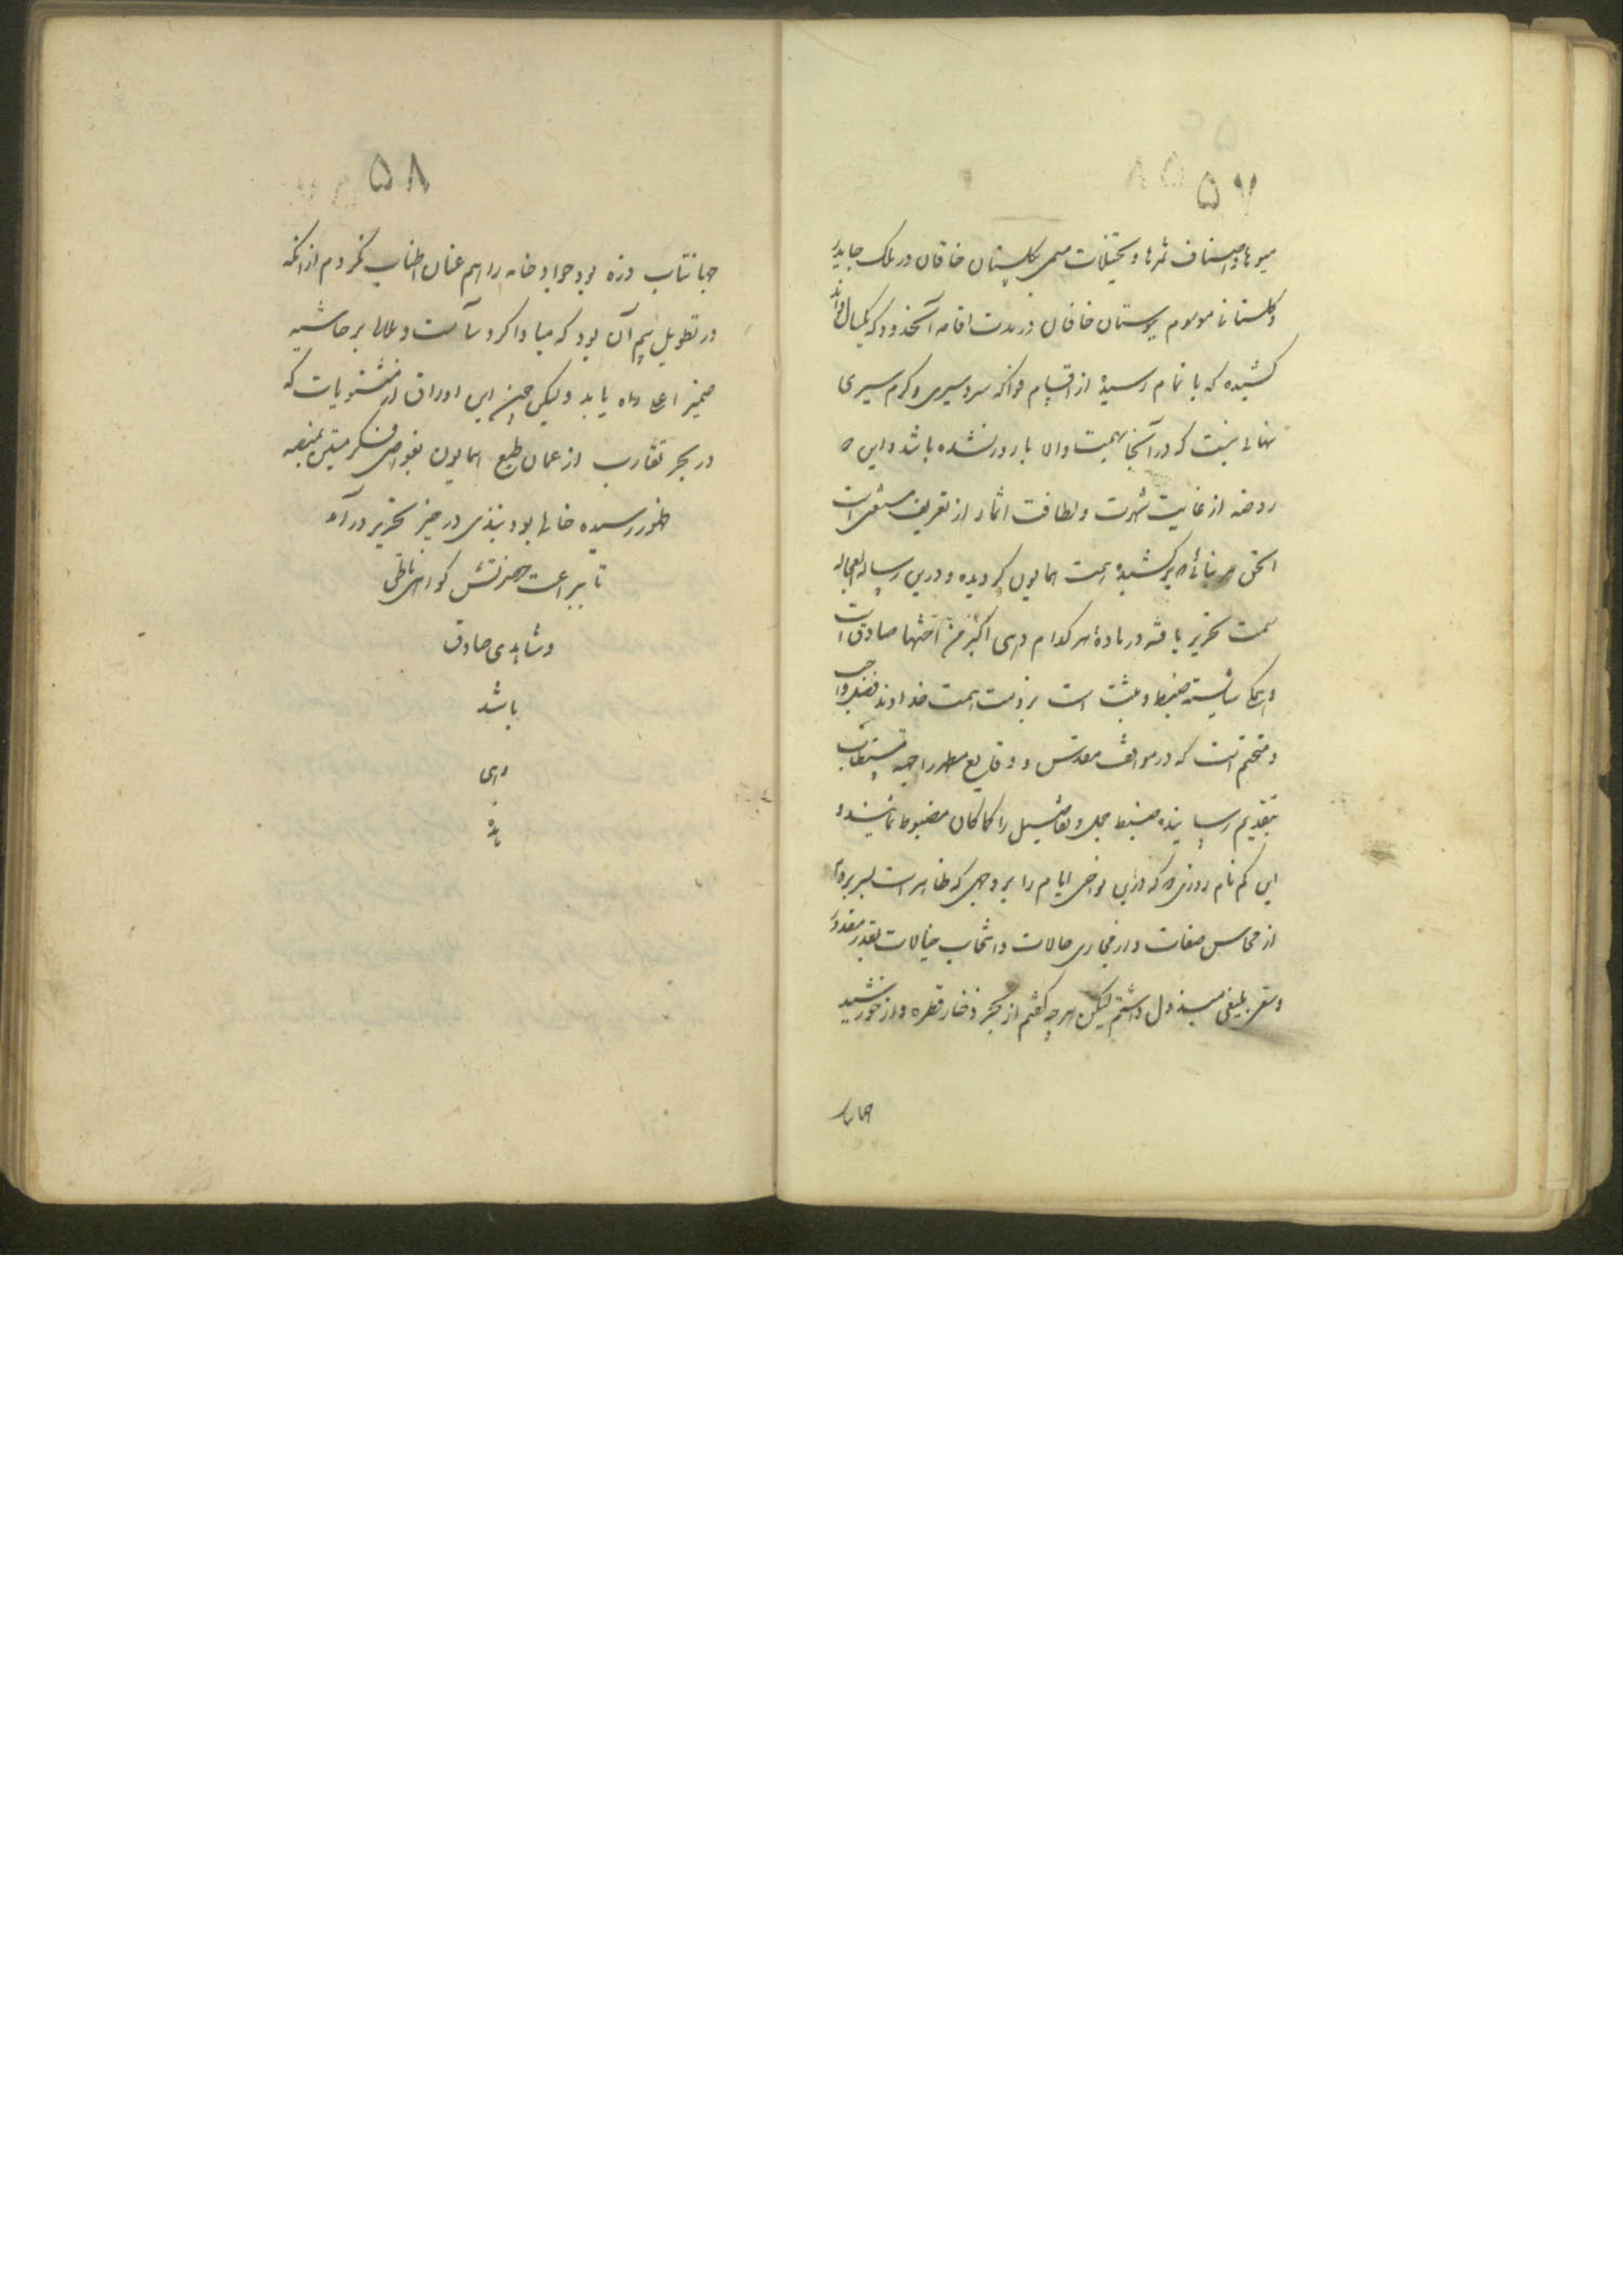 ۵۷
میوها و اصناف ثمرها و تخیلات مسمی بگلستان خاقان در ملک جاپدر
و گلستان موسوم ببوستان خاقان در مدت اقامه آنحدود که یکسال
کشیده که با تمام رسیده از اقسام فواکه سردسیری و گرمسیری
نهالی نیست که در آنجا بهمت والا بارور نشده باشد و این
روضه از غایت شهرت و لطافت اثمار از تعریف مستغنی است
الحق هر بنائی که برکشیدهٔ همت همایون گردیده و درین رساله العجاله
سمت تحریر یافته در مادهٔ هر کدام وهی اکبر من اختها صادق است
و همگی شایستهٔ ضبط و ثبت است بر ذمت همت خداوند فضل واجب
و متحتم است که در مواقف مقدس و وقایع مطهر را
بتقدیم رسانیده ضبط جمل و تفاصیل را کماکان مضبوط نمایند و
این کم نام روزی که درین نواحی ایام را بر وجهی که ظاهر است بسر برده
از محاسن صفات و از مجاری حالات و انتخاب خیالات بقدر مقدور
و سعی بلیغی مبذول داشتم لیکن هر چه گفتم از بحر ذخار قطره و از خورشید
جهانتاب
۵۸
جهانتاب ذره بود جواد خامه را هم عنان اطناب نکردم از آنکه
در تطویل بیم آن بود که مبادا گرد سآمت و ملالی بر حاشیه
ضمیر اعلی راه یابد ولیکن چون این اوراق از مثنویات که
در بحر تقارب از عمان طبع همایون بغواصی فکر متین بمنصه
ظهور رسیده خالی بود نبذی در حیز تحریر درآمد
تا ببراعت حضرتش گواهی ناطق
و شاهدی صادق
باشد
وهی
هذه